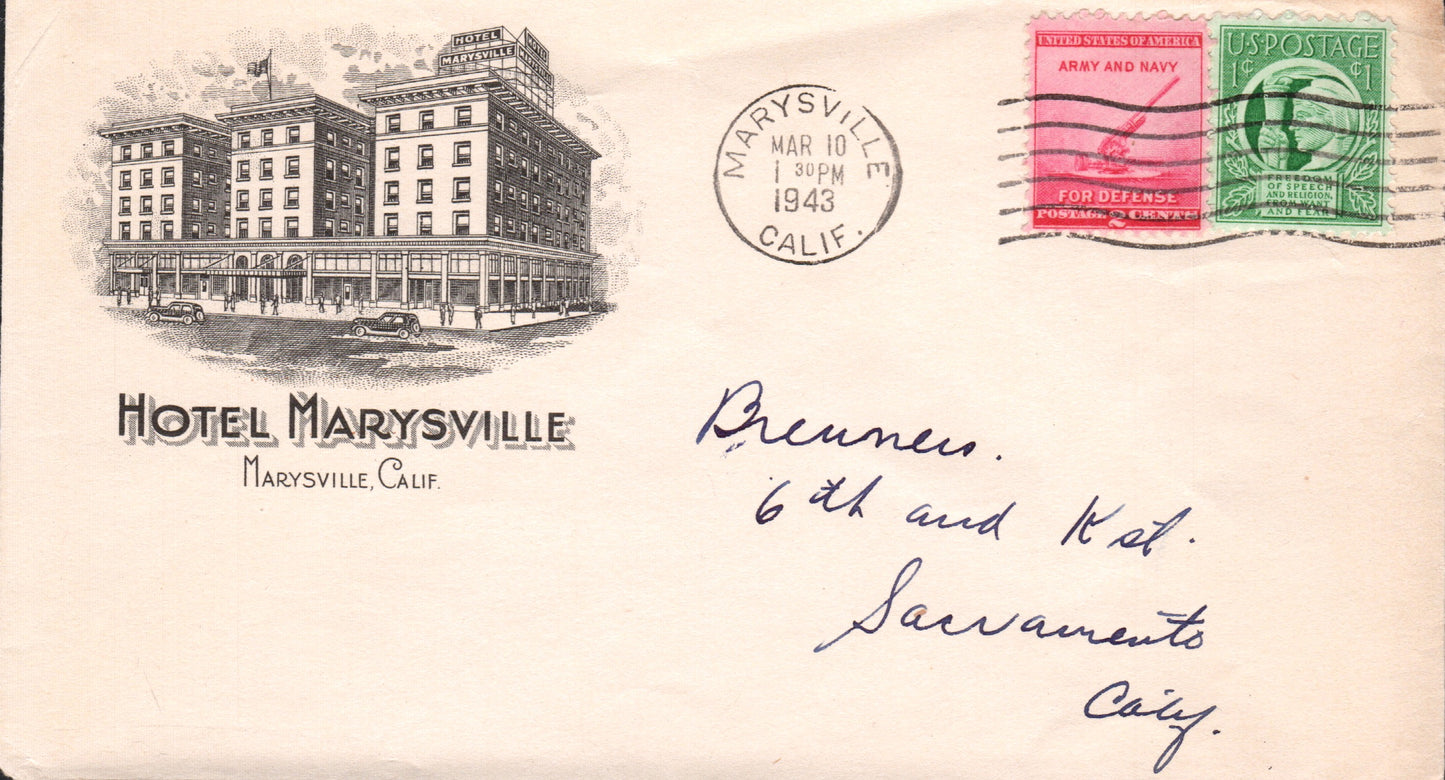 HOTEL
MARYSVILLE
HOTEL
HOTEL MARYSVILLE
MARYSVILLE, CALIF.
MARYSVILLE
MAR 10
1 30 PM
1943
CALIF.
UNITED STATES OF AMERICA
ARMY AND NAVY
FOR DEFENSE
POSTAGE 2 CENTS
U·S·POSTAGE
1¢ ¢1
FREEDOM
OF SPEECH
AND RELIGION,
FROM WANT
AND FEAR
Breuners.
6th and K st.
Sacramento
Calif.